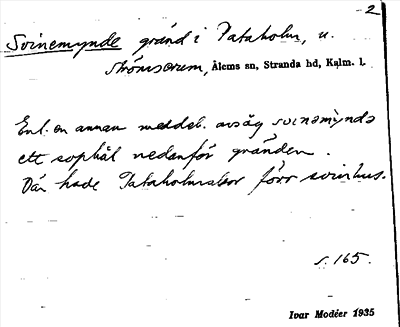 2
Svinemynde gränd i Pataholm, u.
Strömserum, Ålems sn, Stranda hd, Kalm. l.
Enl. en annan meddel. avsåg svinemynde
ett sophål nedanför gränden.
Där hade Pataholmsbor förr svinhus.
s. 165.
Ivar Modéer 1935